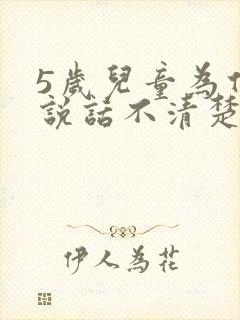 5歲兒童為
説話不清楚
伊人為花